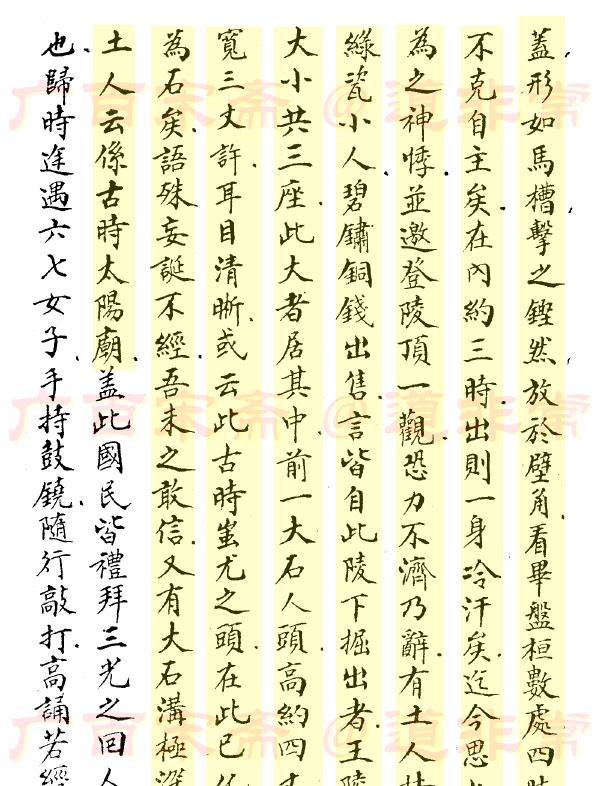 蓋形如馬槽擊之鏗然放於壁角看畢盤桓數處四時
不克自主矣在內約三時出則一身冷汗矣迄今思
為之神悸並邀登陵頂一觀恐力不濟乃辭有土人
綠瓷小人碧鏽銅錢出售言皆自此陵下掘出者王陵
大小共三座此大者居其中前一大石人頭高約四丈
寬三丈許耳目清晰或云此古時蚩尤之頭在此已
為石矣語殊妄誕不經吾未之敢信又有大石溝極深
土人云係古時太陽廟蓋此國民皆禮拜三光之回人
也歸時途遇六七女子手持鼓鐃隨行敲打高誦若經
广百宋斋 @道非常
广百宋斋 @道非常
广百宋斋 @道非常